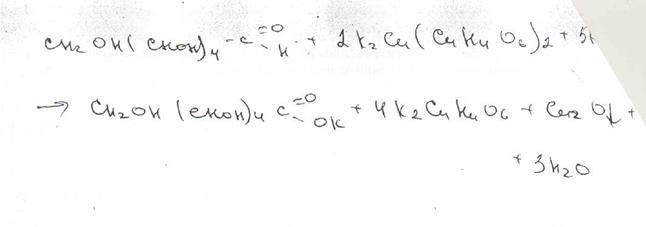 CH2OH(CHOH)4-C=O-H + 2K2Cu(C4H4O6)2 + 5
→ CH2OH(CHOH)4C=O-OK + 4K2C4H4O6 + Cu2O↓ +
+ 3H2O